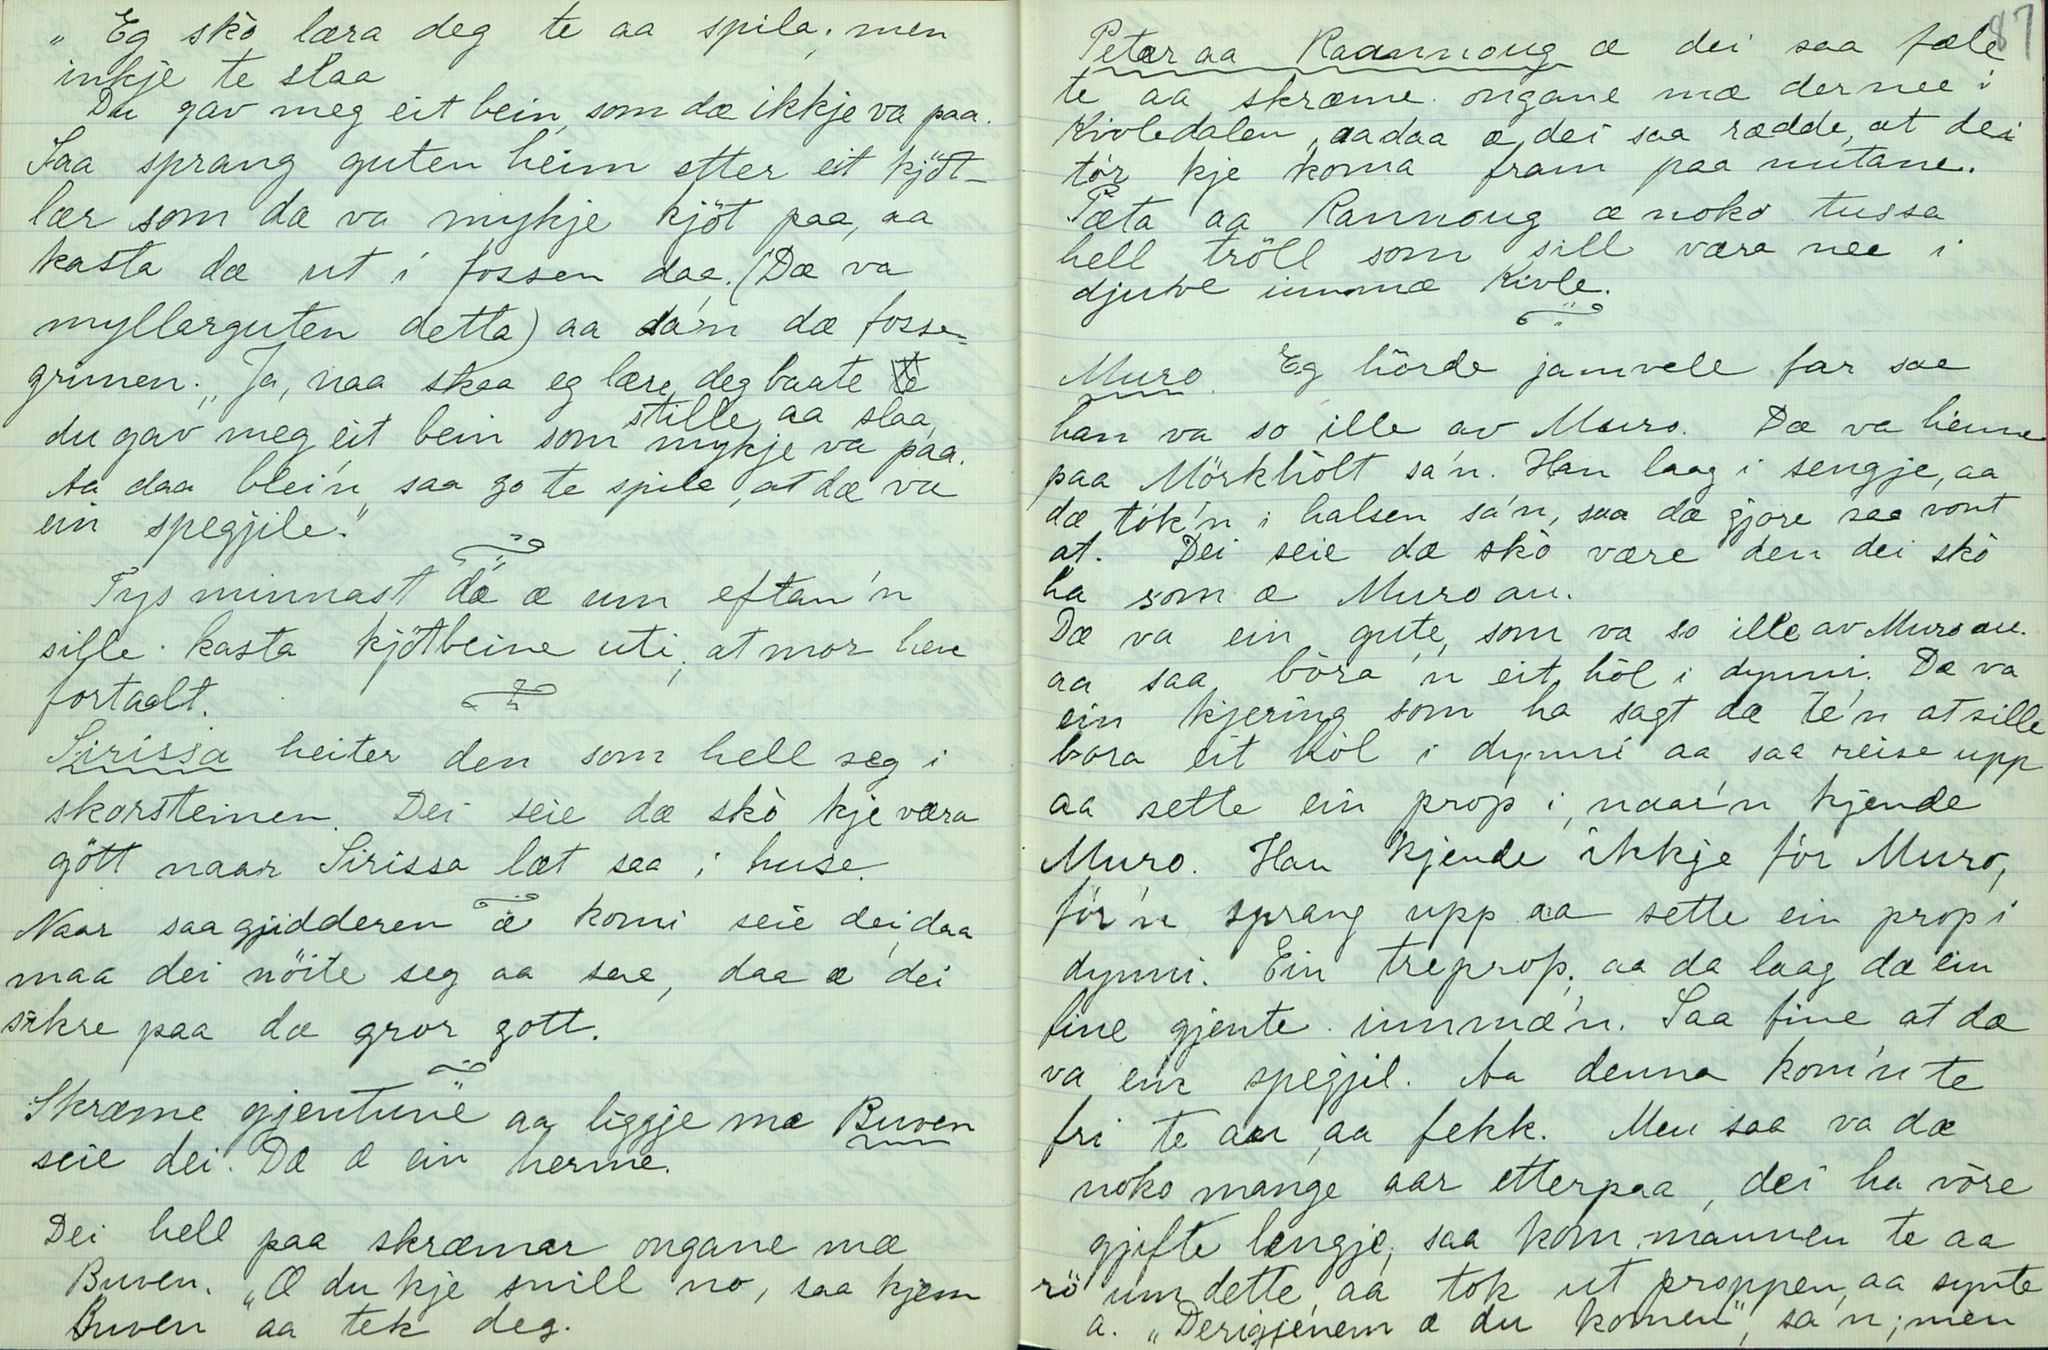 „Eg skò læra deg te aa spila, men
inkje te slaa
Du gav meg eit bein, som dæ ikkje va paa.
Saa sprang guten heim etter eit kjöt-
lær som dæ va mykje kjöt paa, aa
kasta dæ ut i fossen daa. (Dæ va
myllarguten detta) aa sa'n dæ fosse-
grimen: „Ja, naa skaa eg lære deg baate
stille aa slaa,
du gav meg eit bein som mykje va paa.
Aa daa blei'n saa go te spila, at dæ va
ein spegjile."
Tys minnast dá æ um eftan'n
sille kasta kjötbeine uti, at mor hev
fortaalt.
Sirissa heiter den som hell seg i
skorsteinen. Dei seie dæ skò kje væra
gött naar Sirissa læt saa i huse.
Naar saagjidderen æ komi seie dei, daa
maa dei nöite seg aa sae, daa æ dei
sikre paa dæ gror gott.
Skræme gjentune aa liggje mæ Buven
seie dei. Dæ æ ein herme.
Dei hell paa skræmar ongane mæ
Buven. „Æ du kje snill no, saa kjem
Buven aa tek deg.
87
Petar aa Raannoug æ dei saa fæle
te aa skræme ongane mæ dernee i
Kivledalen, aa daa æ dei saa rædde, at dei
tór kje koma fram paa nutane.
Pæta aa Rannoug æ noko tussa
hell tröll som sill væra nee i
djuve innmæ Kivle.
Muro. Eg hörde jamvele far sae
han va so ille av Muro. Dæ va heime
paa Mörkhòlt sa'n. Han laag i sengje, aa
dæ tók'n i halsen sa'n, saa dæ gjore saa vont
at. Dei seie dæ skò være den dei skò
ha som æ Muro au.
Dæ va ein gute, som va so ille av Muro au.
aa saa bòra'n eit hòl i dynni. Dæ va
ein kjering som ha sagt dæ te'n at sille
bora eit hòl i dynni aa saa reise upp
aa sette ein prop i, naar'n kjende
Muro. Han kjende ikkje fór Muro,
fór'n sprang upp aa sette ein prop i
dynni. Ein treprop, aa da laag dæ ein
fine gjente innmæ'n. Saa fine at dæ
va ein spegjil. Aa denna kom'n te
fri te au, aa fekk. Men saa va dæ
noko mange aar etterpaa, dei ha vòre
gjifte længje, saa kom mannen te aa
rö um dette, aa tok ut proppen, aa synte
a. „Derigjenem æ du komen", sa'n; men